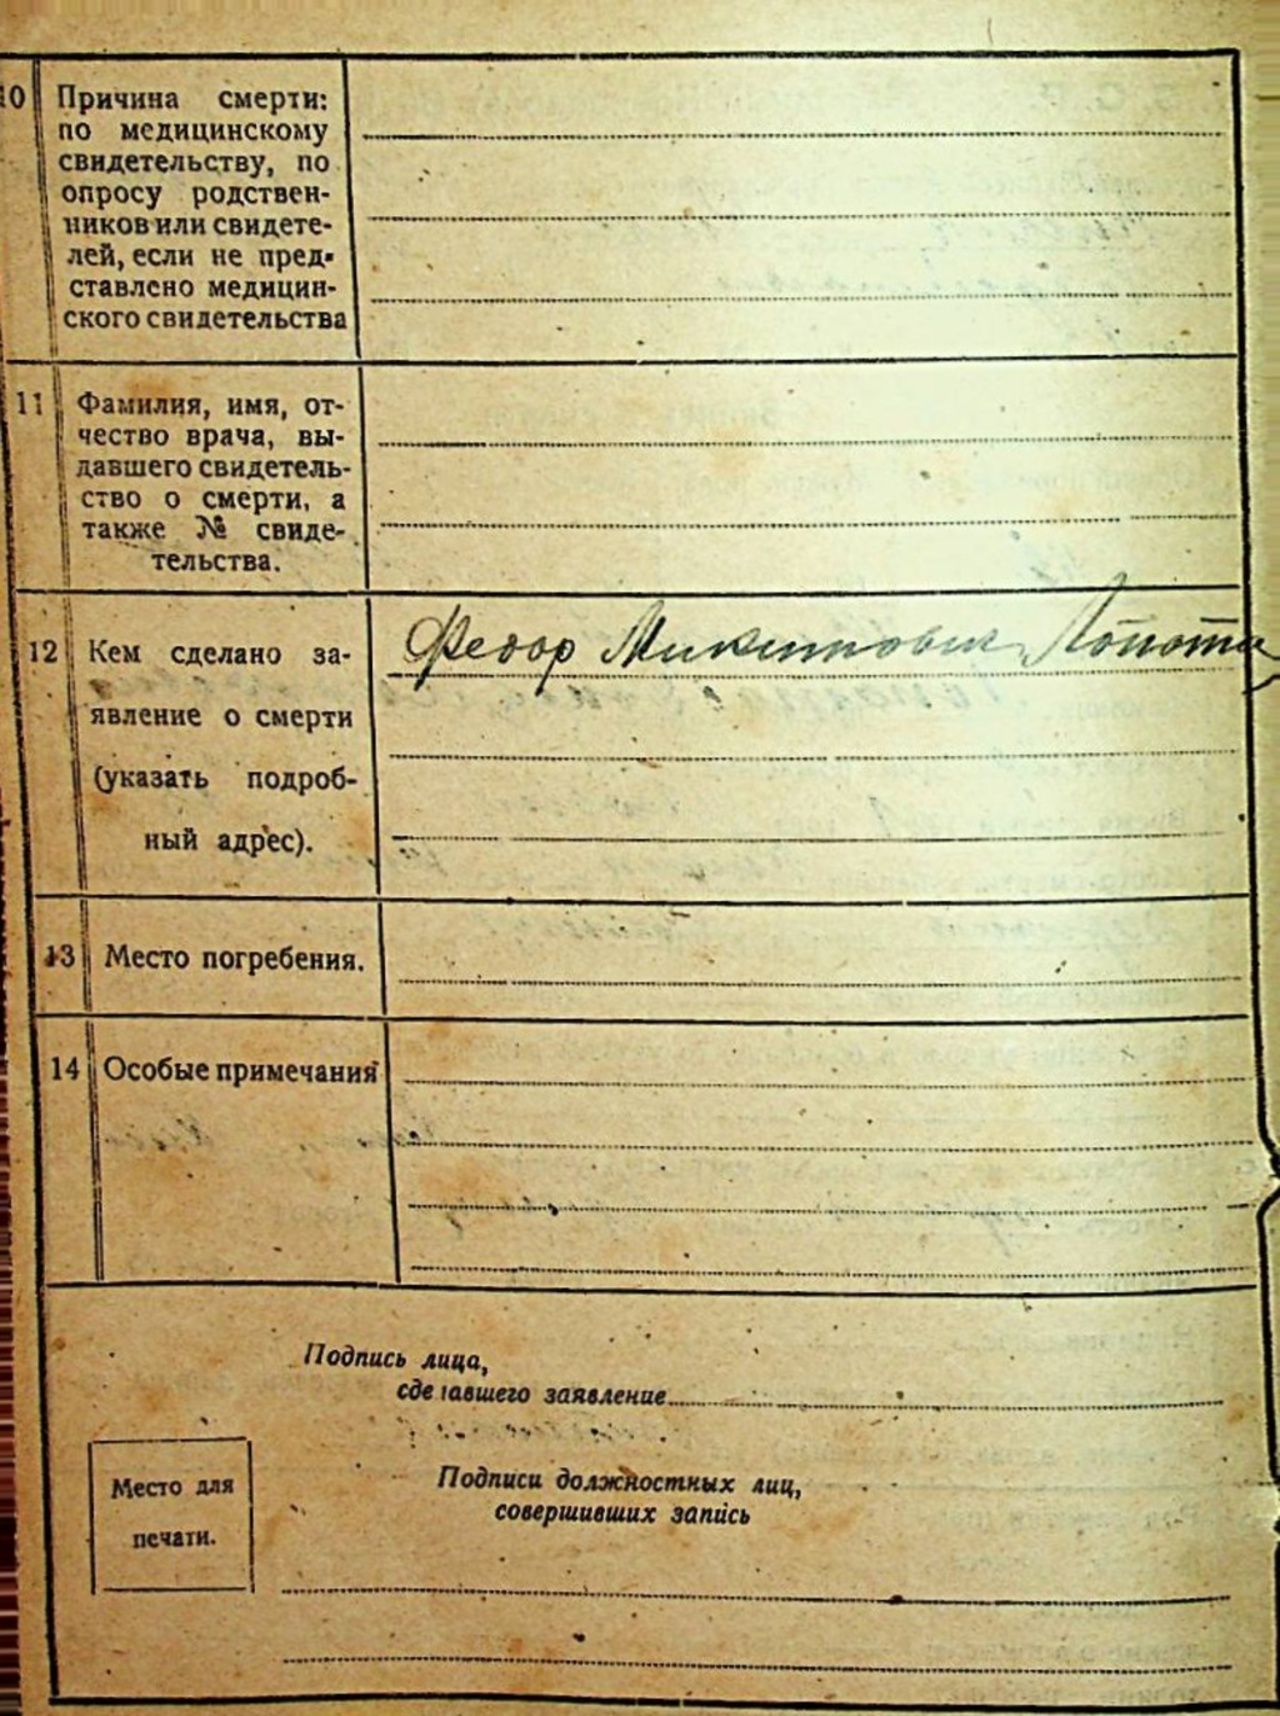 10 Причина смерти:
по медицинскому
свидетельству, по
опросу родствен-
ников или свидете-
лей, если не пред-
ставлено медицин-
ского свидетельства
11 Фамилия, имя, от-
чество врача, вы-
давшего свидетель-
ство о смерти, а
также № свиде-
тельства.
12 Кем сделано за-
явление о смерти
(указать подроб-
ный адрес).
Федор Микитович Лопота
13 Место погребения.
14 Особые примечания
Подпись лица,
сделавшего заявление
Место для
печати.
Подписи должностных лиц,
совершивших запись